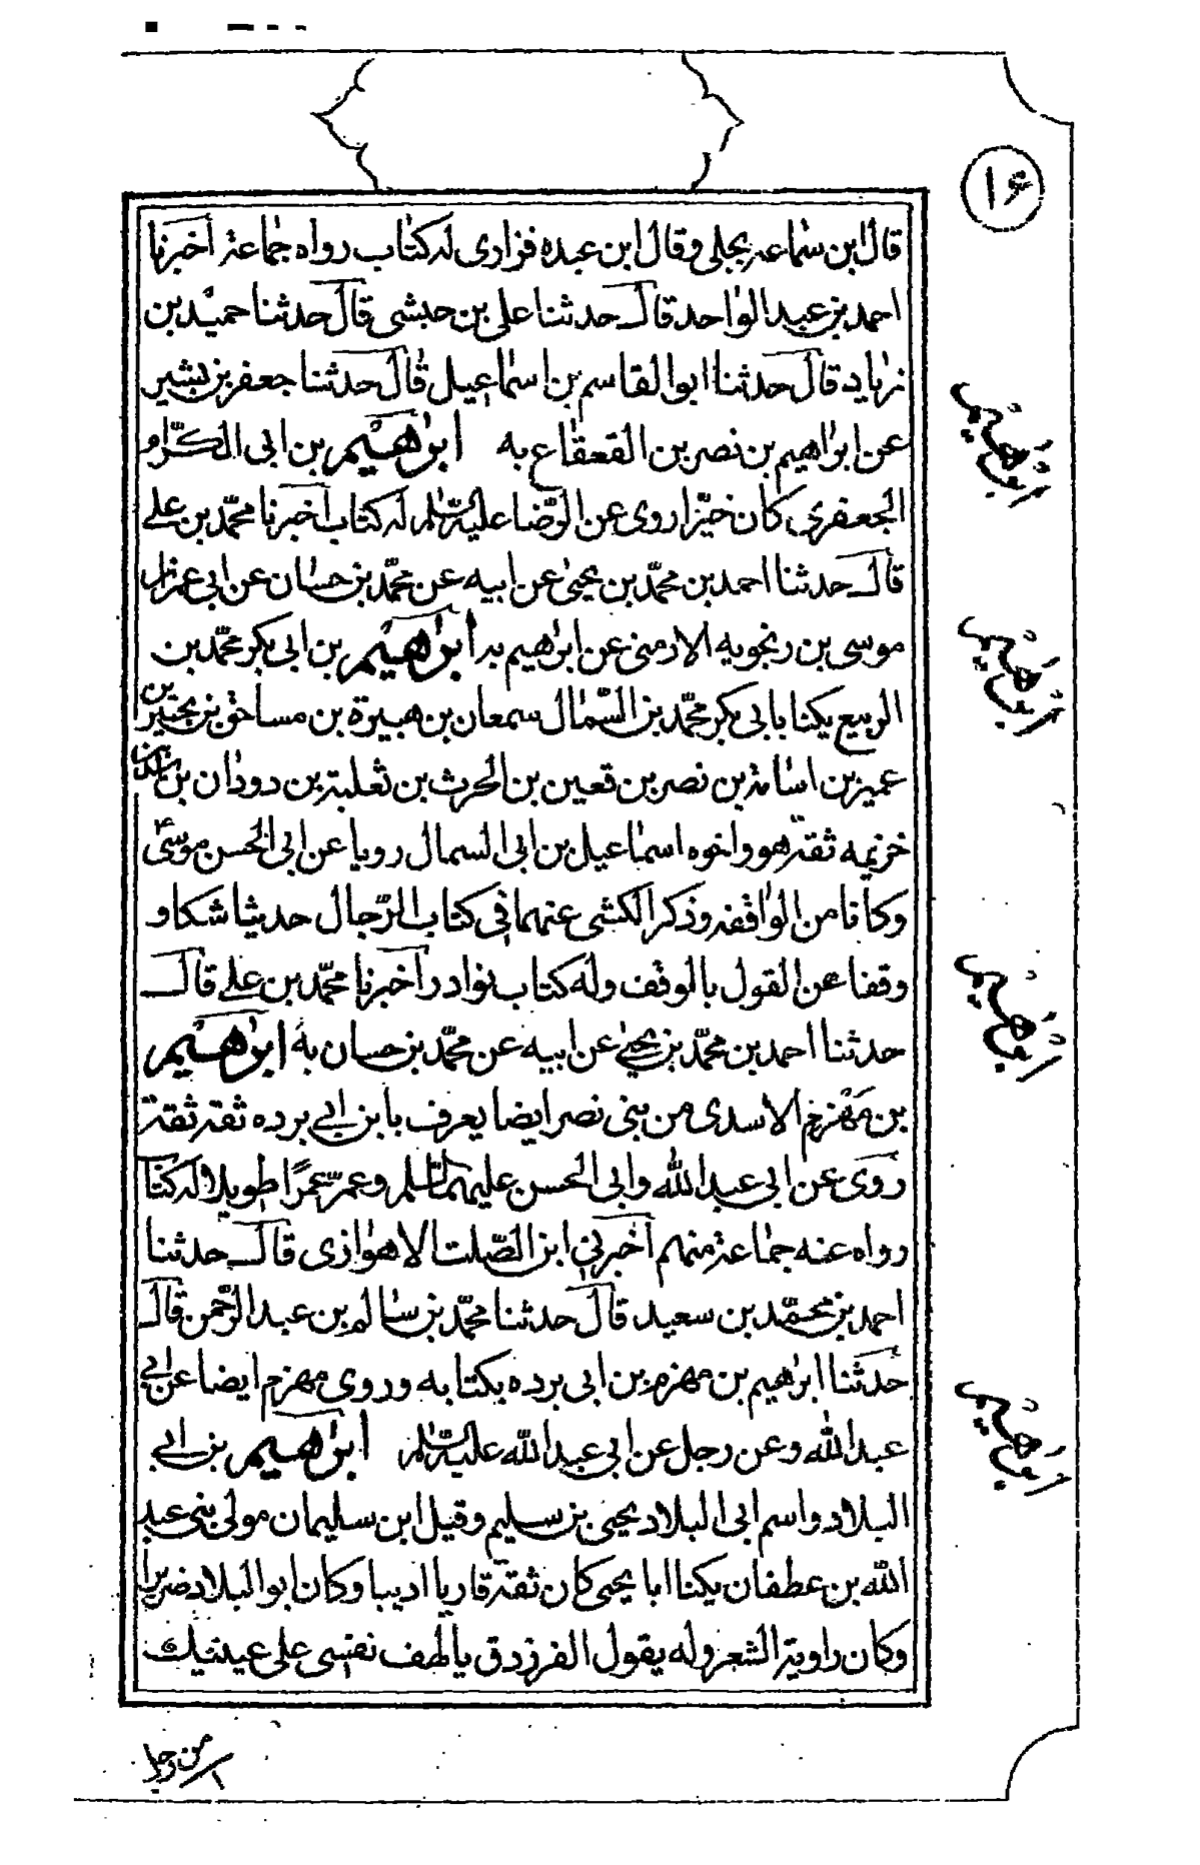 ١۶
قال ابن سماعه بجلى وقال ابن عبده فزارى له كتاب رواه جماعة أخبرنا
احمد بن عبد الواحد قال حدثنا على بن حبشى قال حدثنا حميد بن
زياد قال حدثنا ابو القاسم بن اسماعيل قال حدثنا جعفر بن بشير
عن ابراهيم بن نصر بن القعقاع به ابراهيم بن ابى الكرّام
الجعفرى كان خيّرا روى عن الرّضا عليه السّلام له كتاب أخبرنا محمّد بن على
قال حدثنا احمد بن محمّد بن يحيى عن ابيه عن محمّد بن حسان عن ابى عمران
موسى بن رنجويه الارمنى عن ابراهيم به ابراهيم بن ابى بكر محمّد بن
الربيع يكنا بابى بكر محمّد بن السّمال سمعان بن هبيرة بن مساحق بن بجير بن
عمير بن اسامة بن نصر بن قعين بن الحرث بن ثعلبة بن دودان بن اسد بن
خزيمه ثقة هو واخوه اسماعيل بن ابى السمال رويا عن ابى الحسن موسى ع
وكانا من الواقفه وذكر الكشى عنهما فى كتاب الرّجال حديثا شكا و
وقفا عن القول بالوقف وله كتاب نوادر أخبرنا محمّد بن على قال
حدثنا احمد بن محمّد بن يحيى عن ابيه عن محمّد بن حسان به ابراهيم
بن مهزم الاسدى من بنى نصر ايضا يعرف بابن ابى برده ثقة ثقة
روى عن ابى عبد الله وابى الحسن عليهما السّلام وعمّر عمرًا طويلا له كتاب
رواه عنه جماعة منهم أخبرنى ابن الصّلت الاهوازى قال حدثنا
احمد بن محمّد بن سعيد قال حدثنا محمّد بن سالم بن عبد الرّحمن قال
حدثنا ابراهيم بن مهزم بن ابى برده بكتابه وروى مهزم ايضا عن ابى
عبد الله وعن رجل عن ابى عبد الله عليه السّلام ابراهيم بن ابى
البلاد واسم ابى البلاد يحيى بن سليم وقيل ابن سليمان مولى بنى عبد
الله بن عطفان يكنا ابا يحيى كان ثقة قاريا اديبا وكان ابو البلاد ضريرا
وكان راوية الشعر وله يقول الفرزدق يالهف نفسى على عينيك
من رجل
ابراهيم
ابراهيم
ابراهيم
ابراهيم